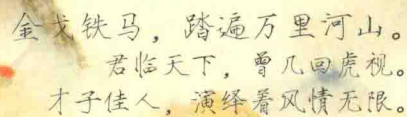 金戈铁马，踏遍万里河山。
君临天下，曾几回虎视。
才子佳人，演绎着风情无限。